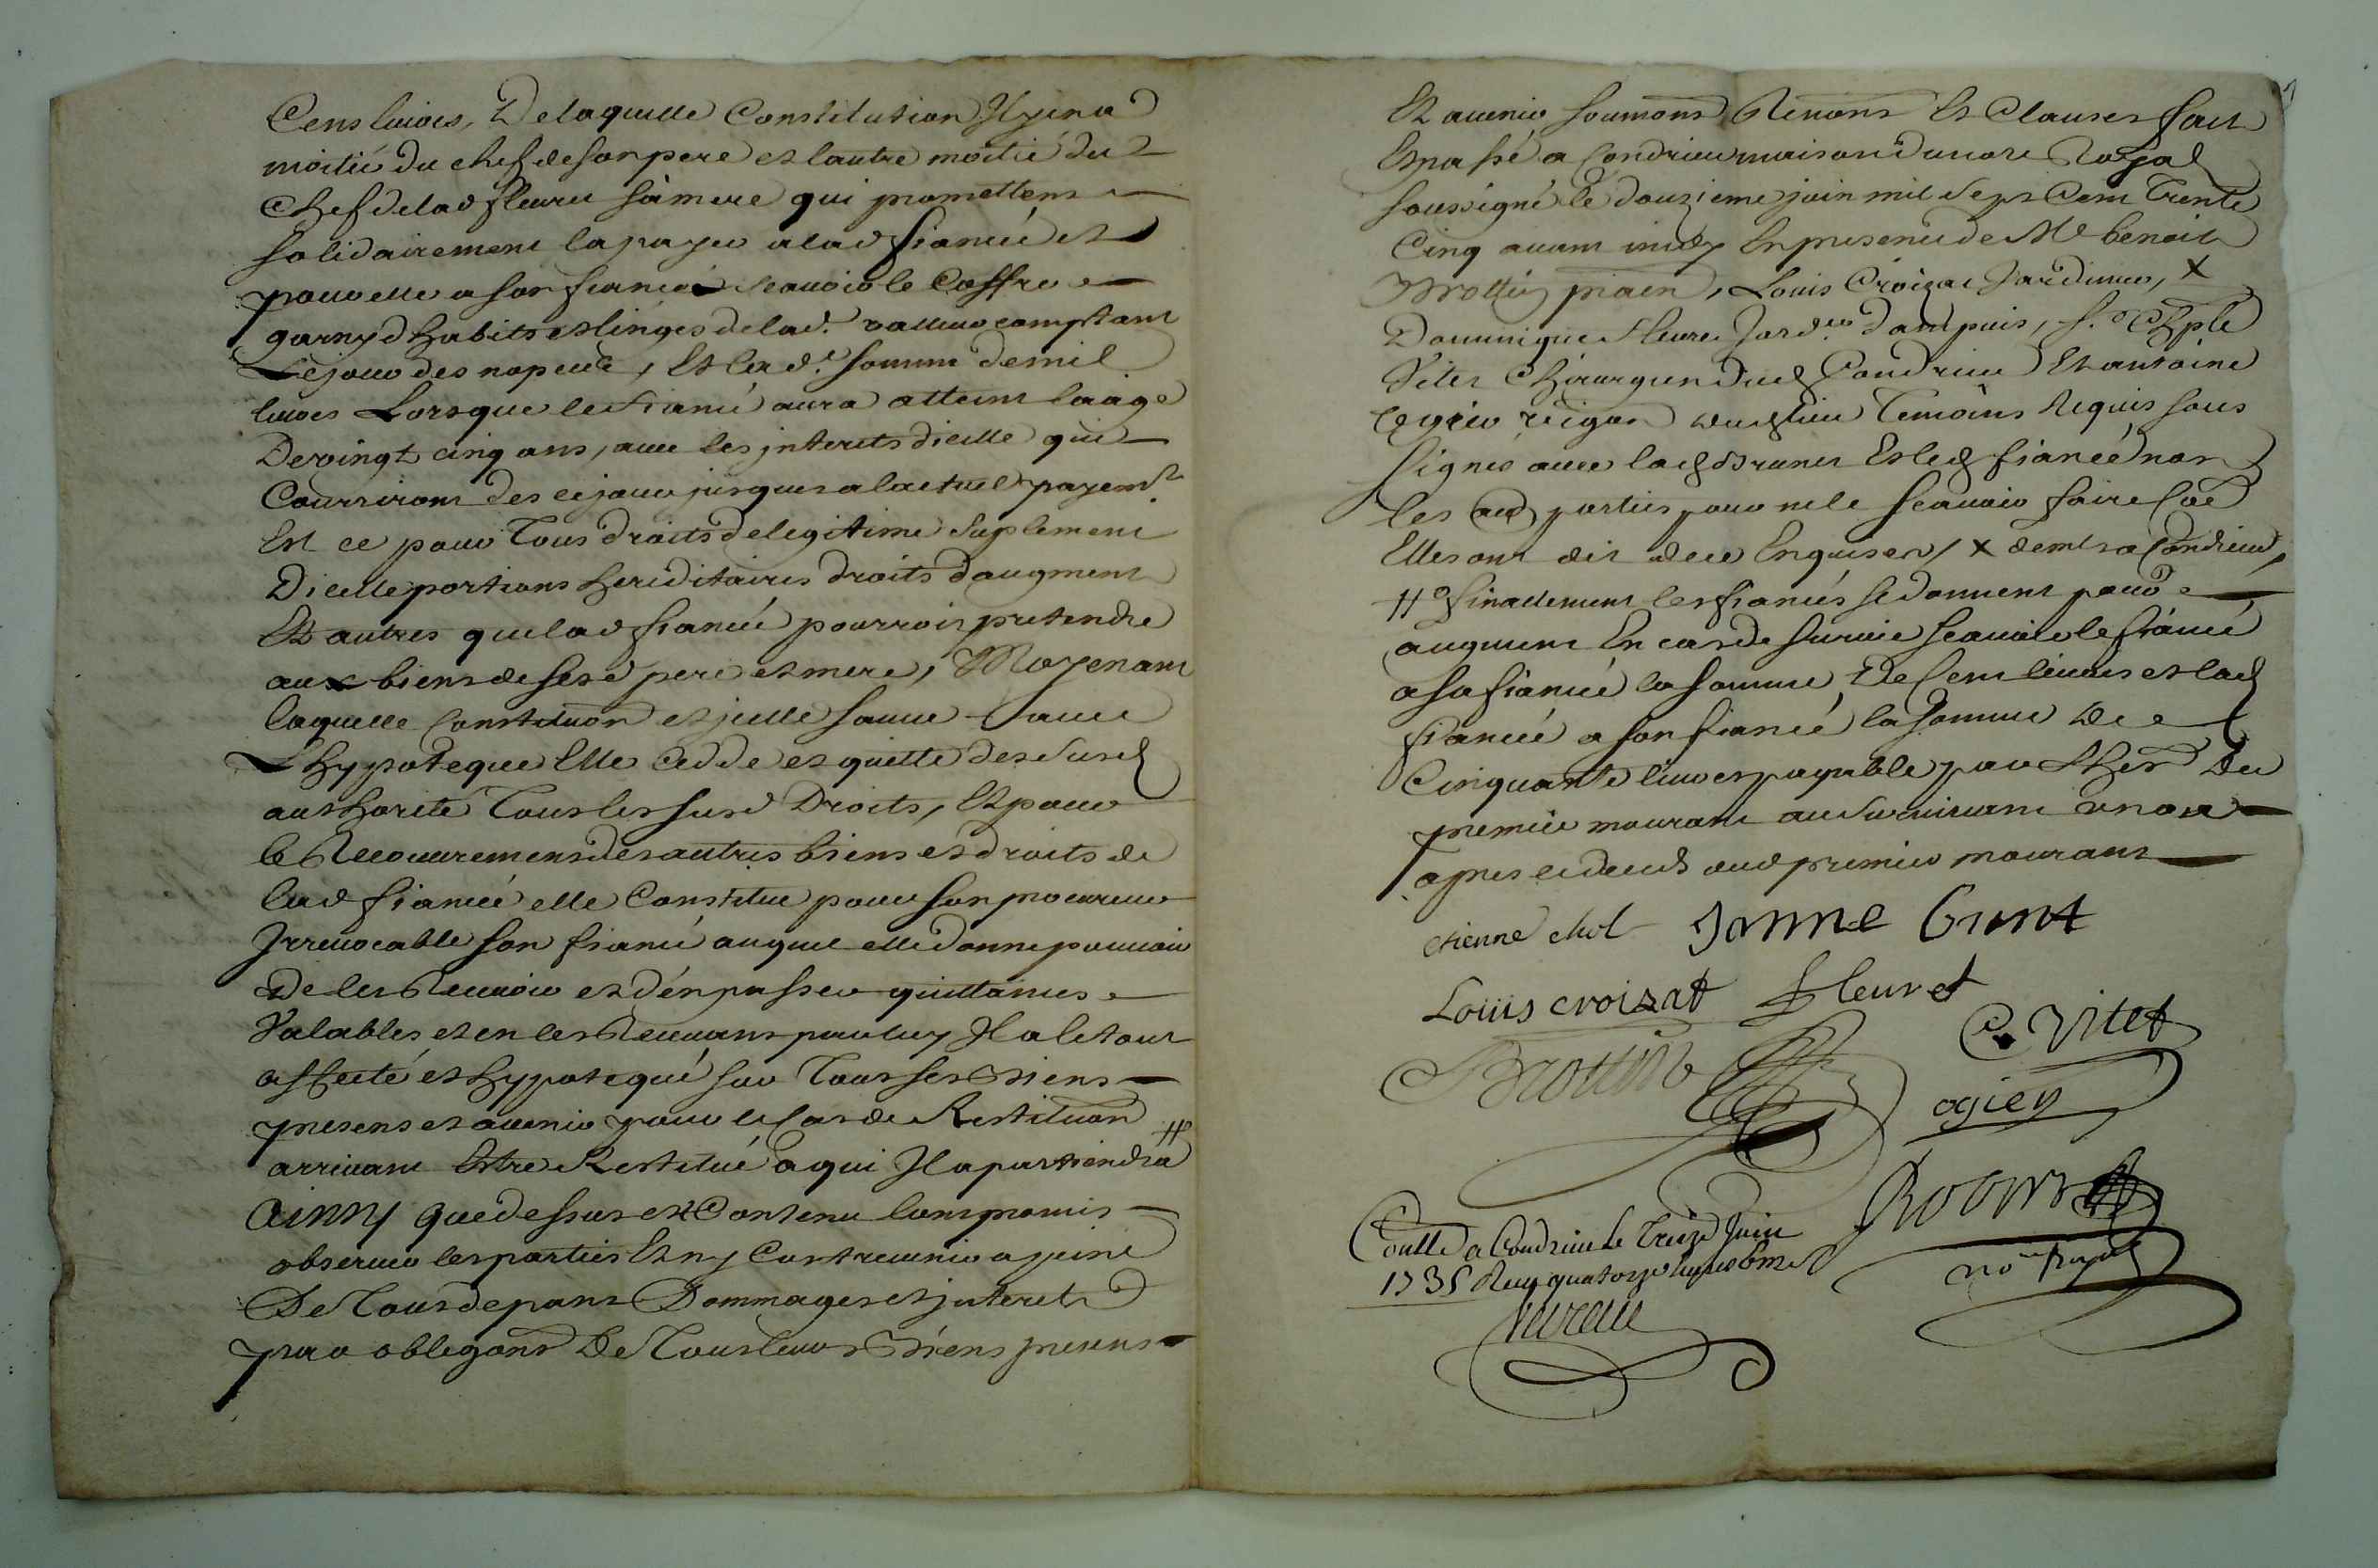 Cens livres, De laquelle Constitution Il y en a
moitié du chef de son pere et lautre moitié du
Chef de lad fleurie sa mere qui promettent
solidairement la payer a lad fiancée et
pour elle a son fiancé scavoir le Coffre
garny dhabits et linges de lad. valleur comptant
Le jour des nopces, Et lad.e somme de mil
livres Lorsque le fiancé aura atteint laage
De vingt cinq ans, avec les jnterets dicelle qui
Courriront des ce jour jusques a lactuel payemt.
Et ce pour Tous droits de legitime Suplement
Dicelle portions hereditaires droits daugment
Et autres que lad fiancée pourroit pretendre
aux biens de sesd pere et mere, Moyenant
laquelle Constituon et jcelle sauve Sauve
L'hypoteque Elle Cedde et quitte des Susd
authorité Tous les susd Droits, Et pour
le Recouvrement des autres biens et droits de
lad fiancée elle Constitue pour son procureur
Irrevocable son fiancé auquel elle donne pouvoir
De les Recevoir et d'en passer quittances
Valables et en les Recevant par luy Il a le tout
affecté et hypotequé sur Tous ses Biens
presens et avenir pour le Cas de Restituon
arrivant Estre Restitué a qui Il apartiendra #
Ainsy que dessus est Contenu lont promis
observer les parties Et ny Contrevenir a peine
De Tous depans Dommages et jnterets
par obligaons De Tous leurs Biens presens
Et avenir soumons Renons Et Clauses fait
Et passé a Condrieu maison du nore Royal
soussigné le douzieme juin mil Sept Cent Trente
Cinq avant midy En presence de Me benoit
Brottin praen, Louis Croizat Jardinier, x
Dominique Fleuret Jard.er dampuis, s. Chple
Vitet Chirurgien dud Condrieu Et antoine
ogier vigon dud lieu Temoins Requis sous
signes avec lad Brunet Et led fiancé non
les aud parties pour ne le Scavoir faire Coe
Elles ont dit de ce Enquises / x demt a Condrieu,
# finallement les fiancés se donnent pour
augment En cas de survie scavoir le fiancé
a sa fiancée la somme De Cent livres et lad
fiancée a son fiancé la somme De
Cinquante livres payable par Lher Du
premier mourant au Survivant un an
apres le deces dud premier mourant
etienne chol Janne brunt
Louis croizat fleuret
Brottin C. Vitet
ogier
Conllé a Condrieu le Treize Juin
1735 Reçu quatorze livres
no.re Royal